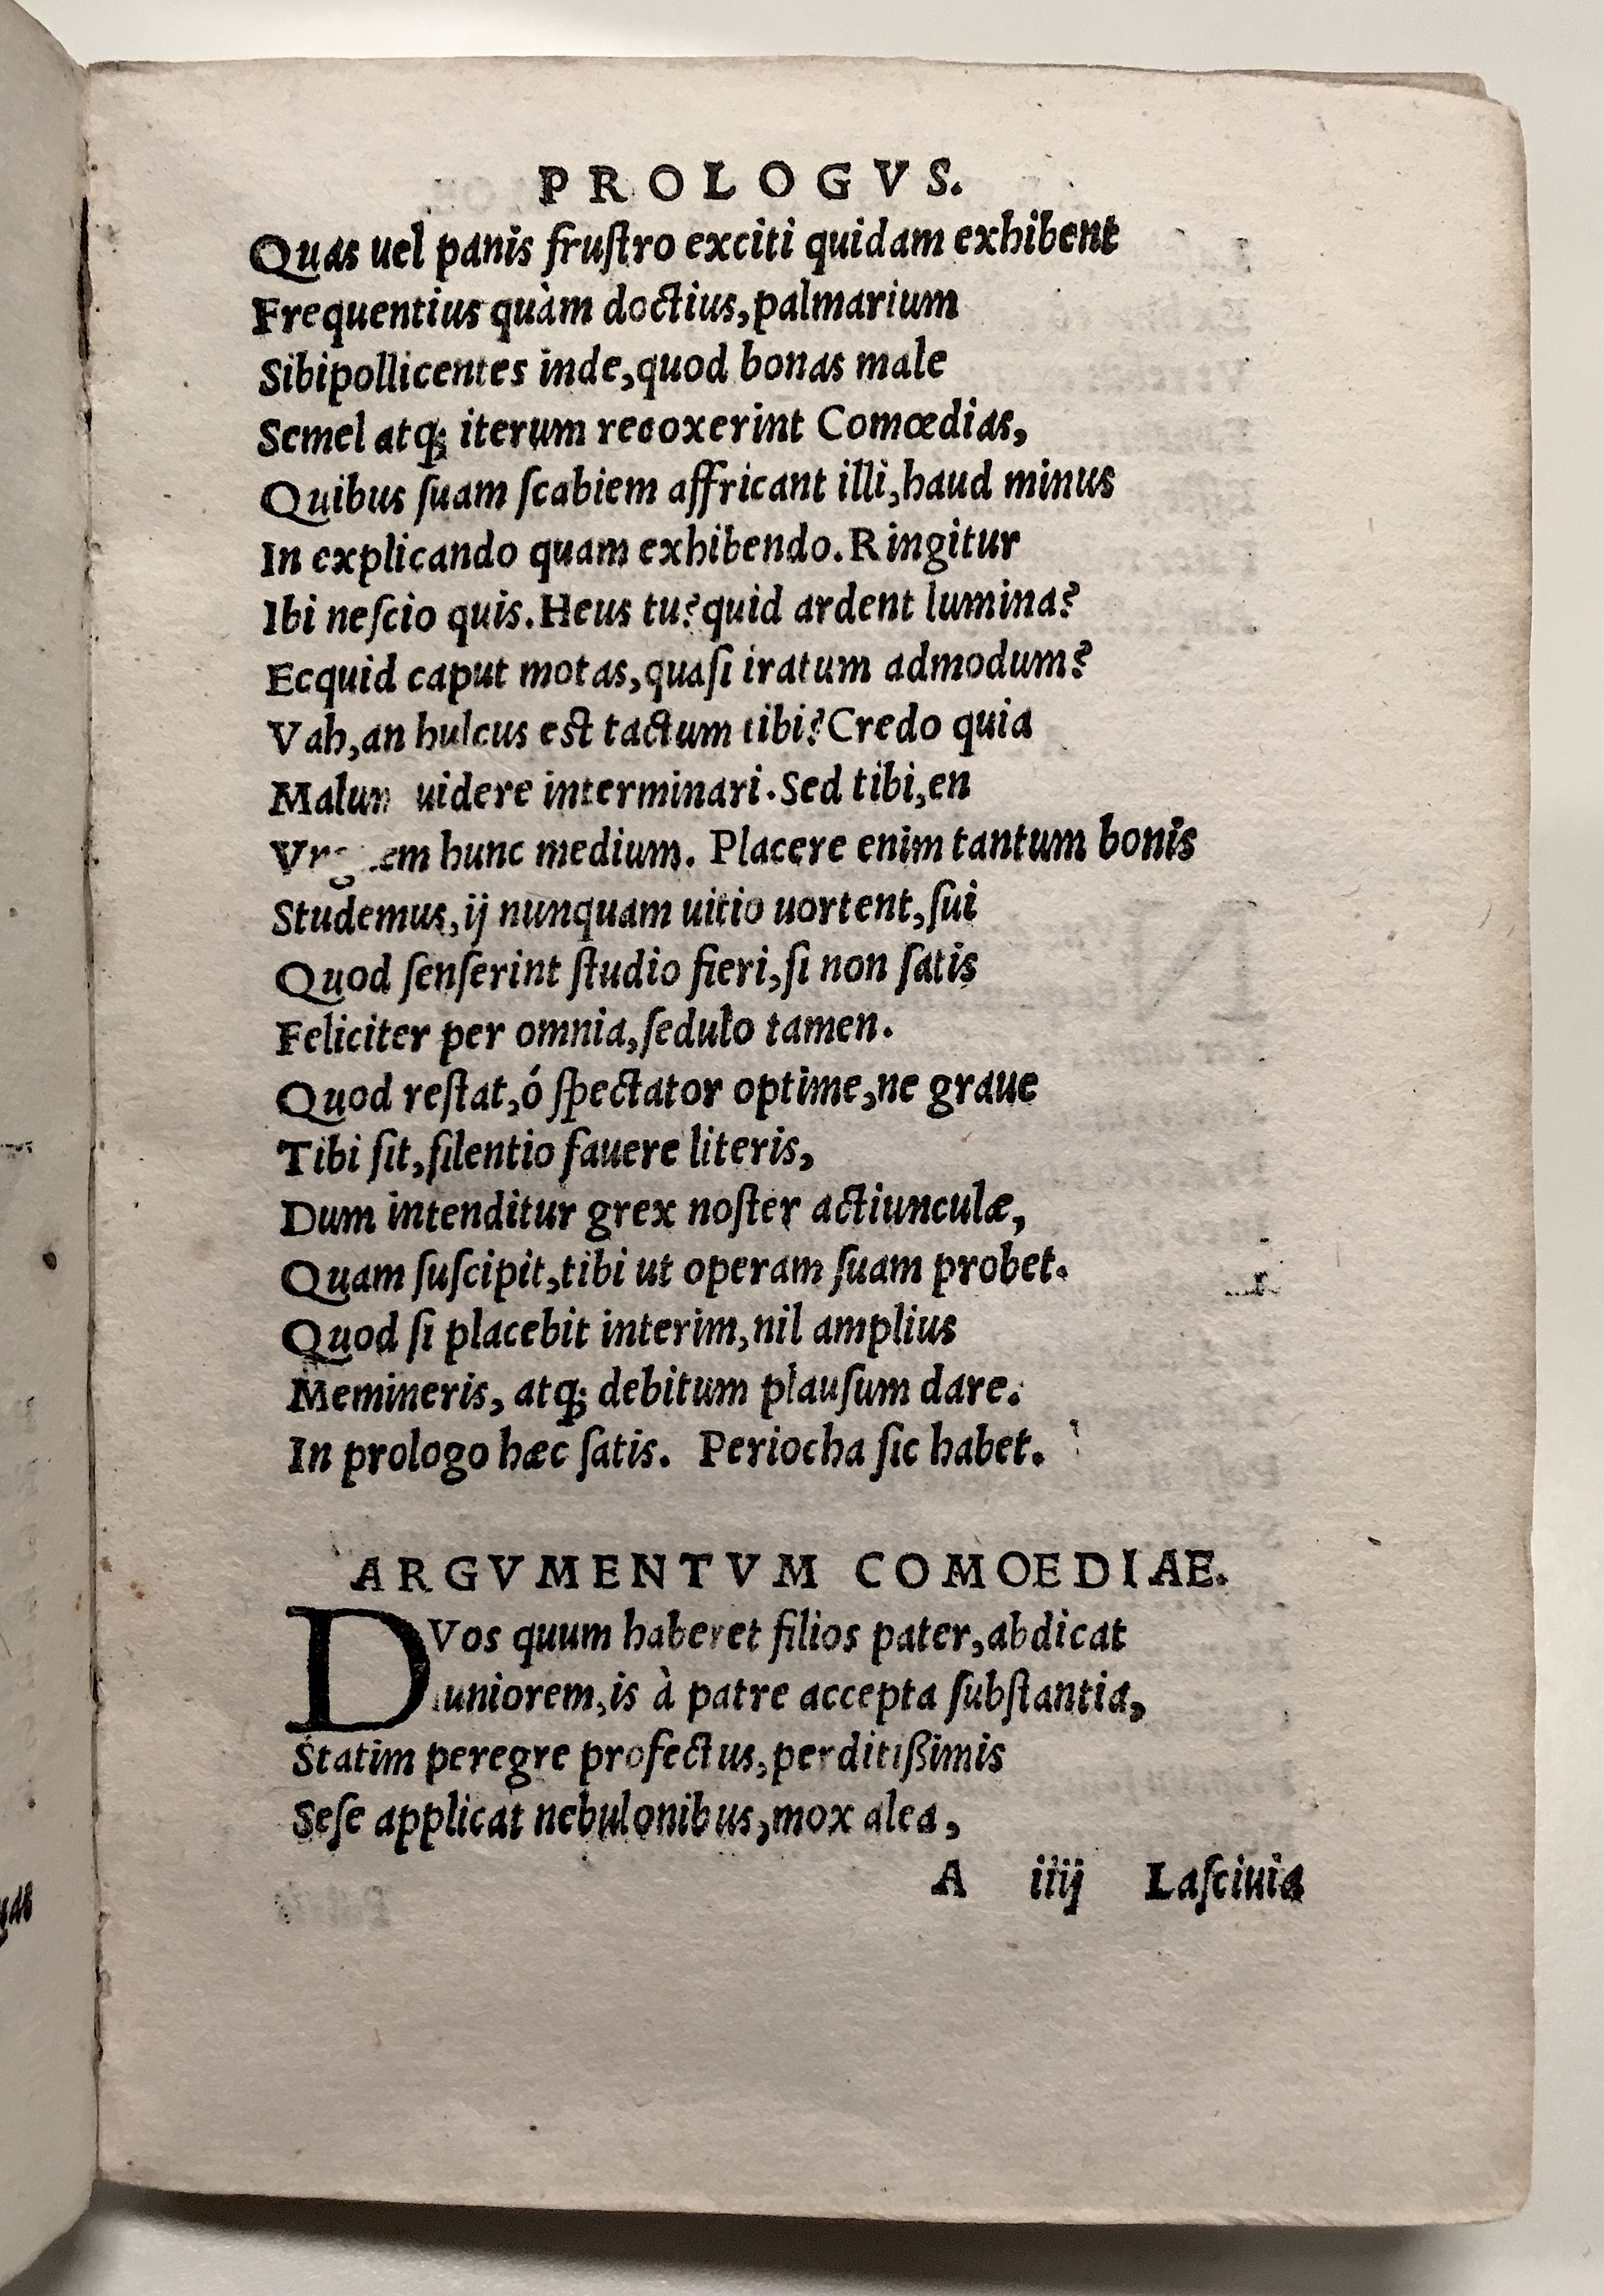 PROLOGVS.
Quas uel panis fruſtro exciti quidam exhibent
Frequentius quàm doctius,palmarium
Sibipollicentes inde,quod bonas male
Semel atq; iterum recoxerint Comœdias,
Quibus ſuam ſcabiem affricant illi,haud minus
In explicando quam exhibendo.Ringitur
Ibi neſcio quis.Heus tu?quid ardent lumina?
Ecquid caput motas,quaſi iratum admodum?
Vah,an hulcus est tactum tibi?Credo quia
Malum uidere interminari.Sed tibi,en
hunc medium. Placere enim tantum bonis
Studemus,ij nunquam uitio uortent,ſui
Quod ſenſerint ſtudio fieri,ſi non ſatis
Feliciter per omnia,ſedulo tamen.
Quod reſtat,ó ſpectator optime,ne graue
Tibi ſit,ſilentio fauere literis,
Dum intenditur grex noſter actiunculæ,
Quam ſuſcipit,tibi ut operam ſuam probet.
Quod ſi placebit interim,nil amplius
Memineris, atq; debitum plauſum dare.
In prologo hæc ſatis. Periocha ſic habet.
ARGVMENTVM COMOEDIAE.
DVos quum haberet filios pater,abdicat
Iuniorem,is à patre accepta ſubſtantia,
Statim peregre profectus,perditißimis
Seſe applicat nebulonibus,mox alea,
A iiij Laſciuia